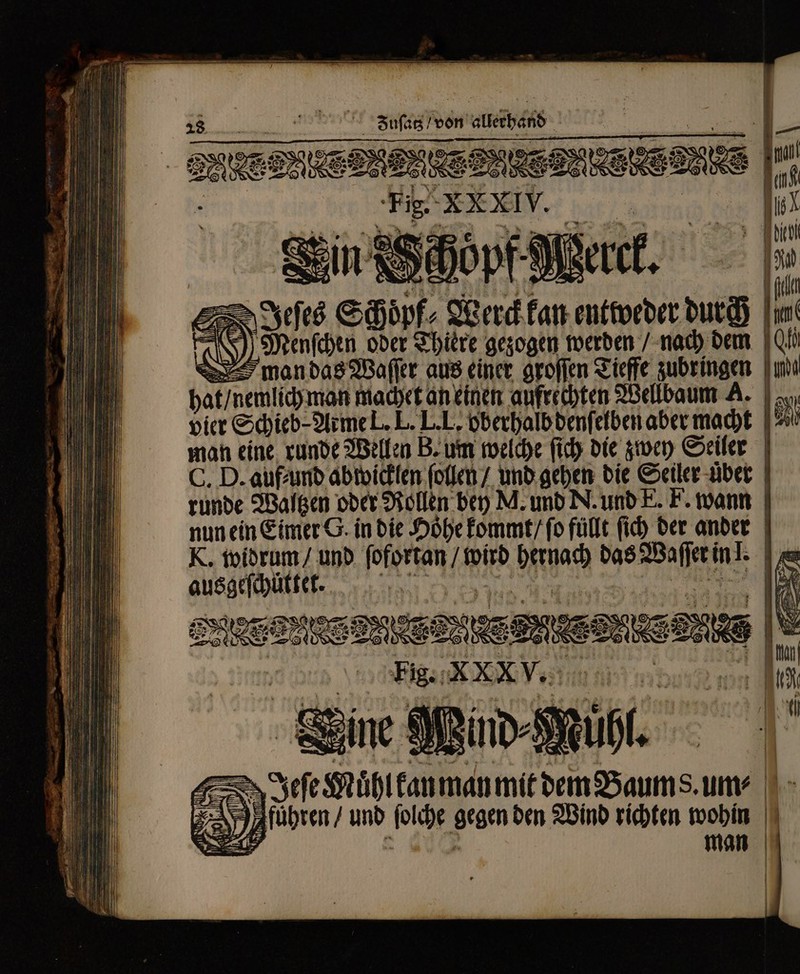 28 Zuſatz / von allerhand
Fig. XXXIV.
Ein Schoͤpf-Werck.
DIeſes Schoͤpf⸗ Werck kan entweder durch
Menſchen oder Thiere gezogen werden / nach dem
man das Waſſer aus einer groſſen Tieffe zubringen
hat/nemlich man machet an einen aufrechten Wellbaum A.
vier Schieb-Arme L. L. L.L. oberhalb denſelben aber macht
man eine runde Wellen B. um welche ſich die zwey Seiler
C. D. auf⸗und abwicklen ſollen / und gehen die Seiler uͤber
runde Waltzen oder Rollen bey M. und N. und E. F. wann
nun ein Eimer G. in die Hoͤhe kommt/ ſo fuͤllt ſich der ander
K. widrum / und ſofortan / wird hernach das Waſſer in I.
ausgeſchuͤttet.
Fig. XXXV.
Eine Wind⸗Muͤhl.
DIeſe Muͤhl kan man mit dem Baum S. um⸗
fuͤhren / und ſolche gegen den Wind richten wohin
man